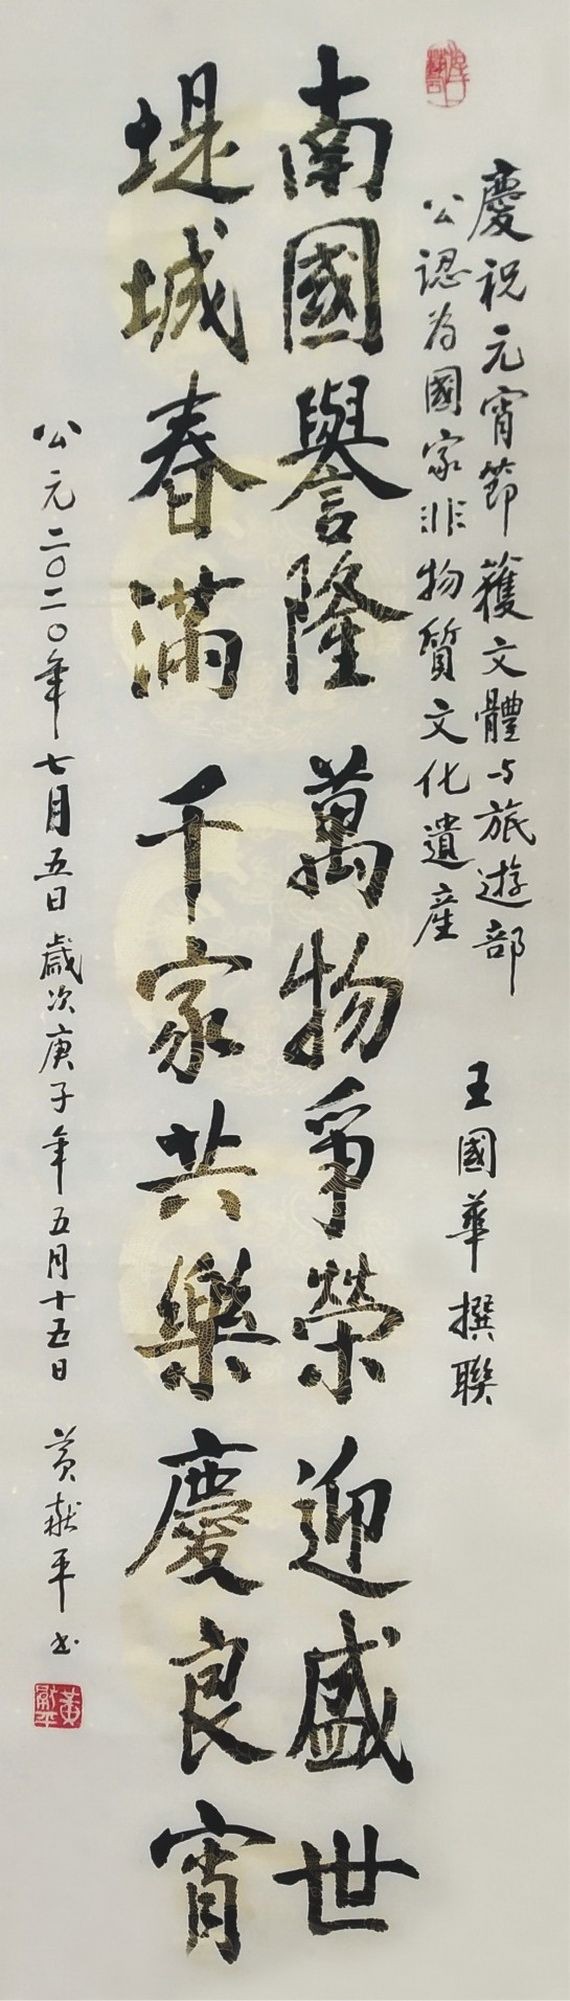 慶祝元宵節獲文體与旅遊部
公認為國家非物質文化遺産
王國華撰聯
南國譽隆萬物爭榮迎盛世
堤城春滿千家共樂慶良宵
公元二〇二〇年七月五日歲次庚子年五月十五日 黄献平书